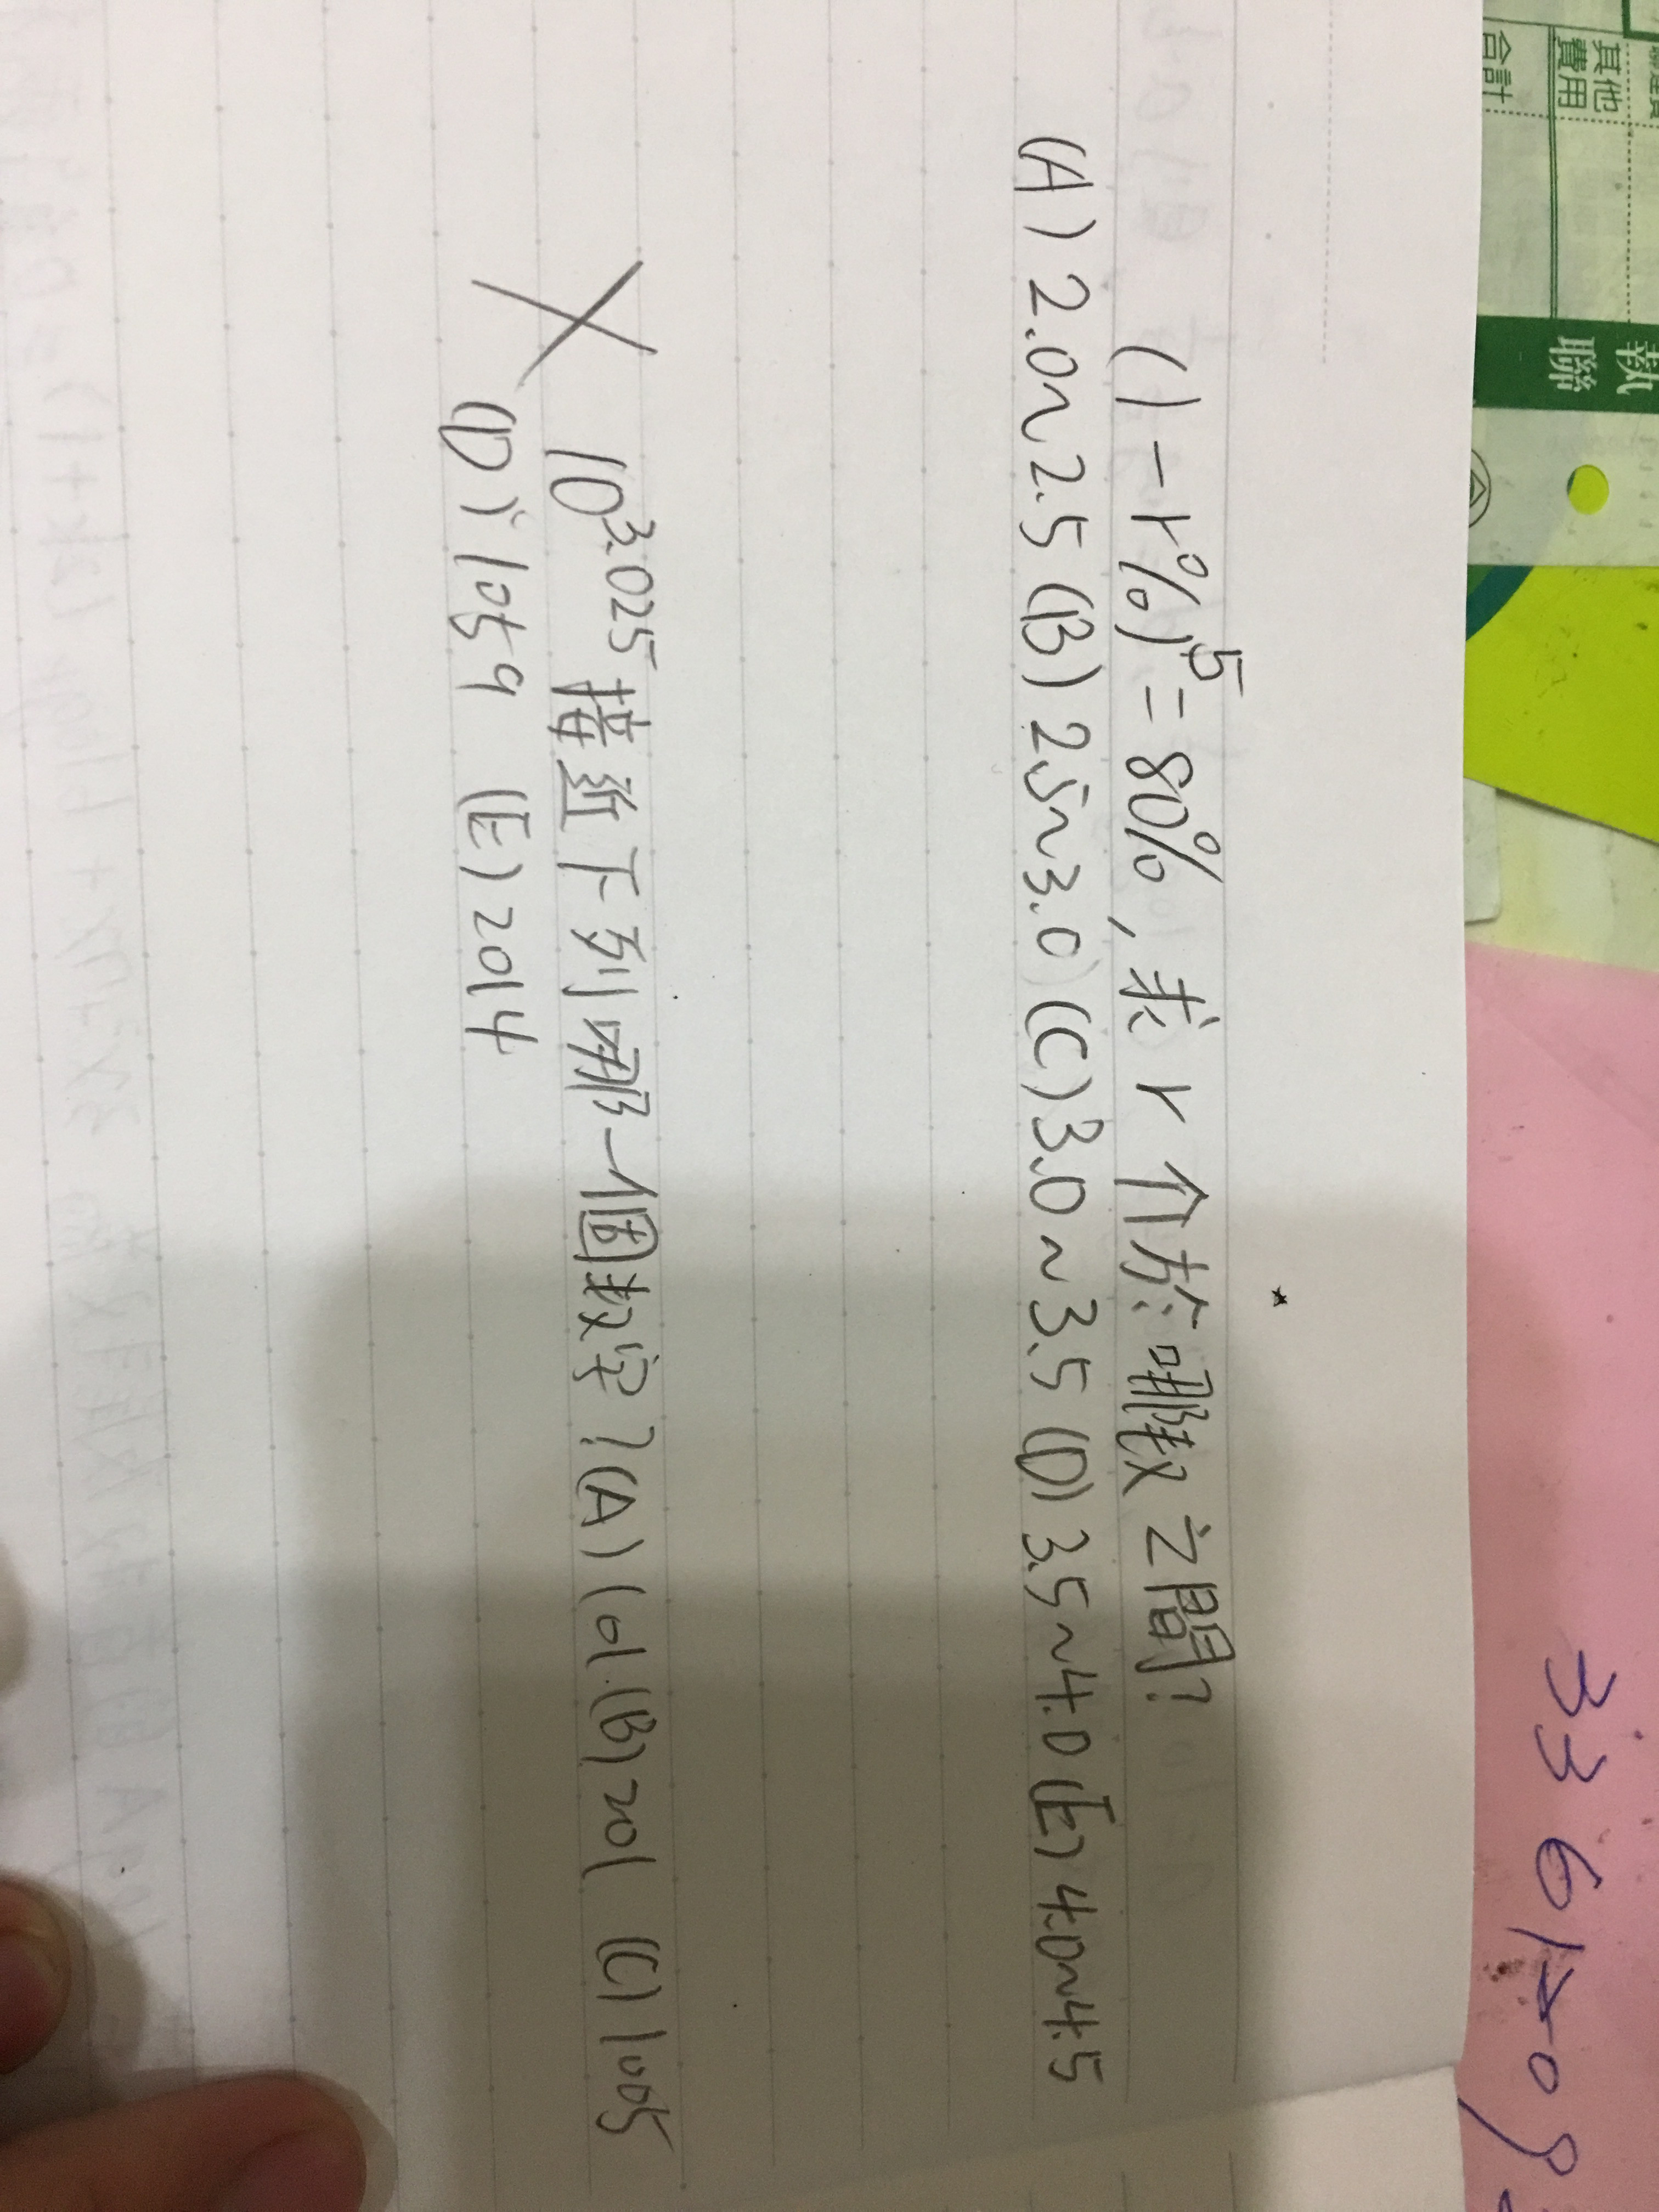 (1-r%)^5=80%,求r介於哪数之間?
(A)2.0~2.5(B)2.5~3.0(C)3.0~3.5(D)3.5~4.0(E)4.0~4.5
10^3.025接近下列哪一個数字?(A)101.(B)201 (C)1005
(D)1059 (E)2014
其他
費用
合計
執
聯